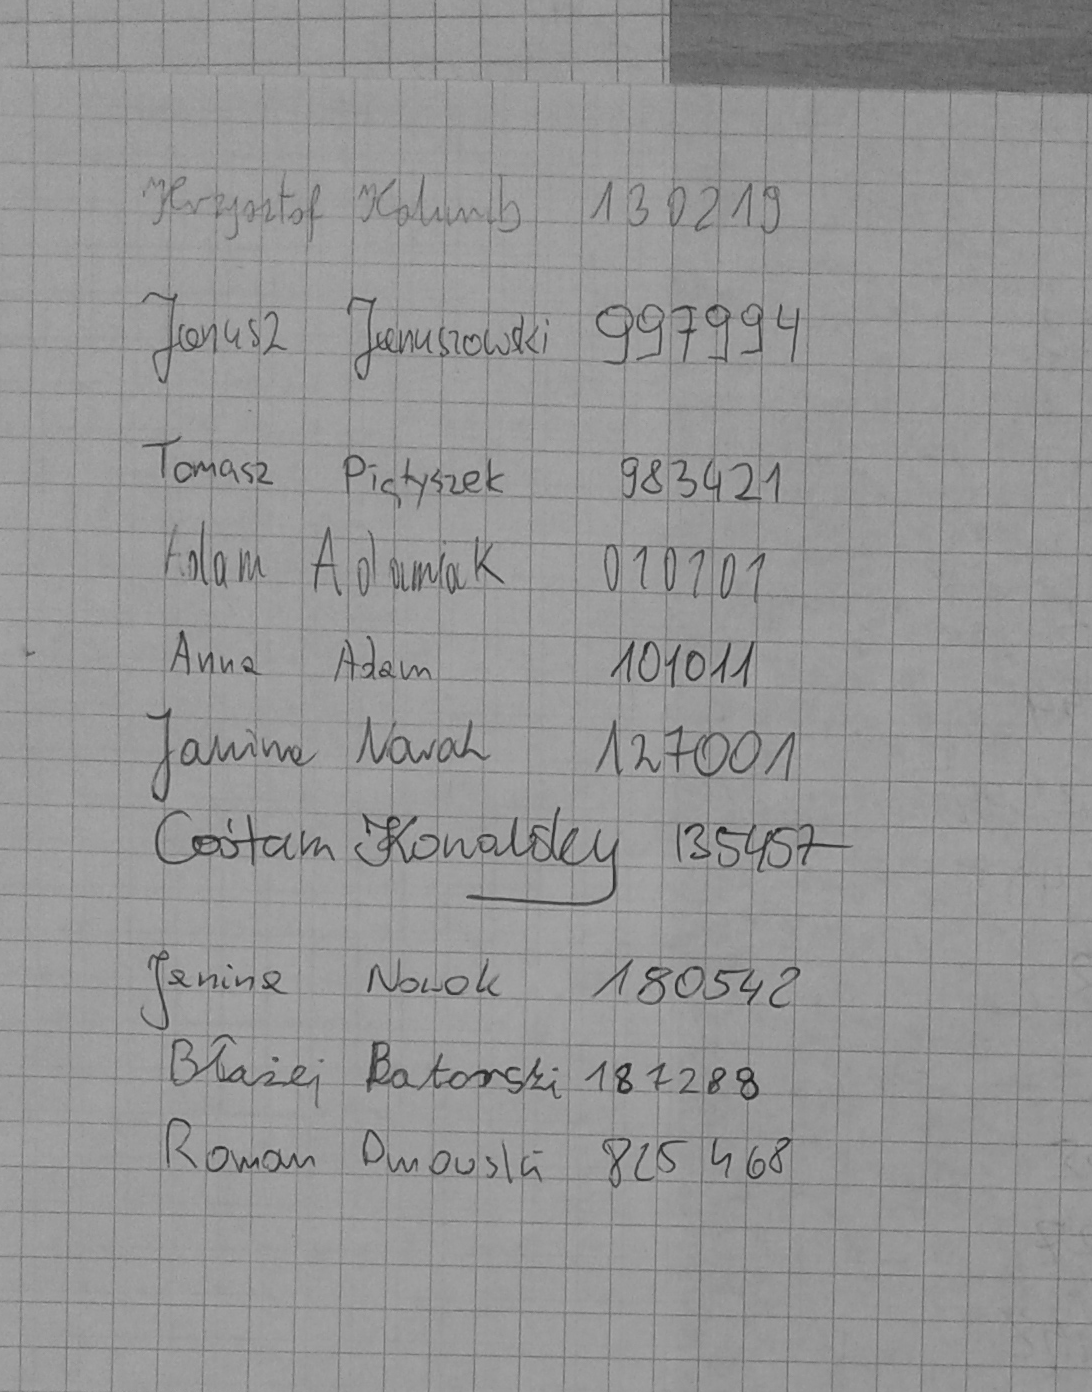 Krzysztof Kolumb 130219
Janusz Januszowski 997994
Tomasz Piątyszek 983421
Adam Adamiak 010101
Anna Adam 101011
Janina Nowak 127001
Cośtam Konalsky 135457
Janina Nowak 180542
Błażej Batorski 187288
Roman Dmowski 825 468